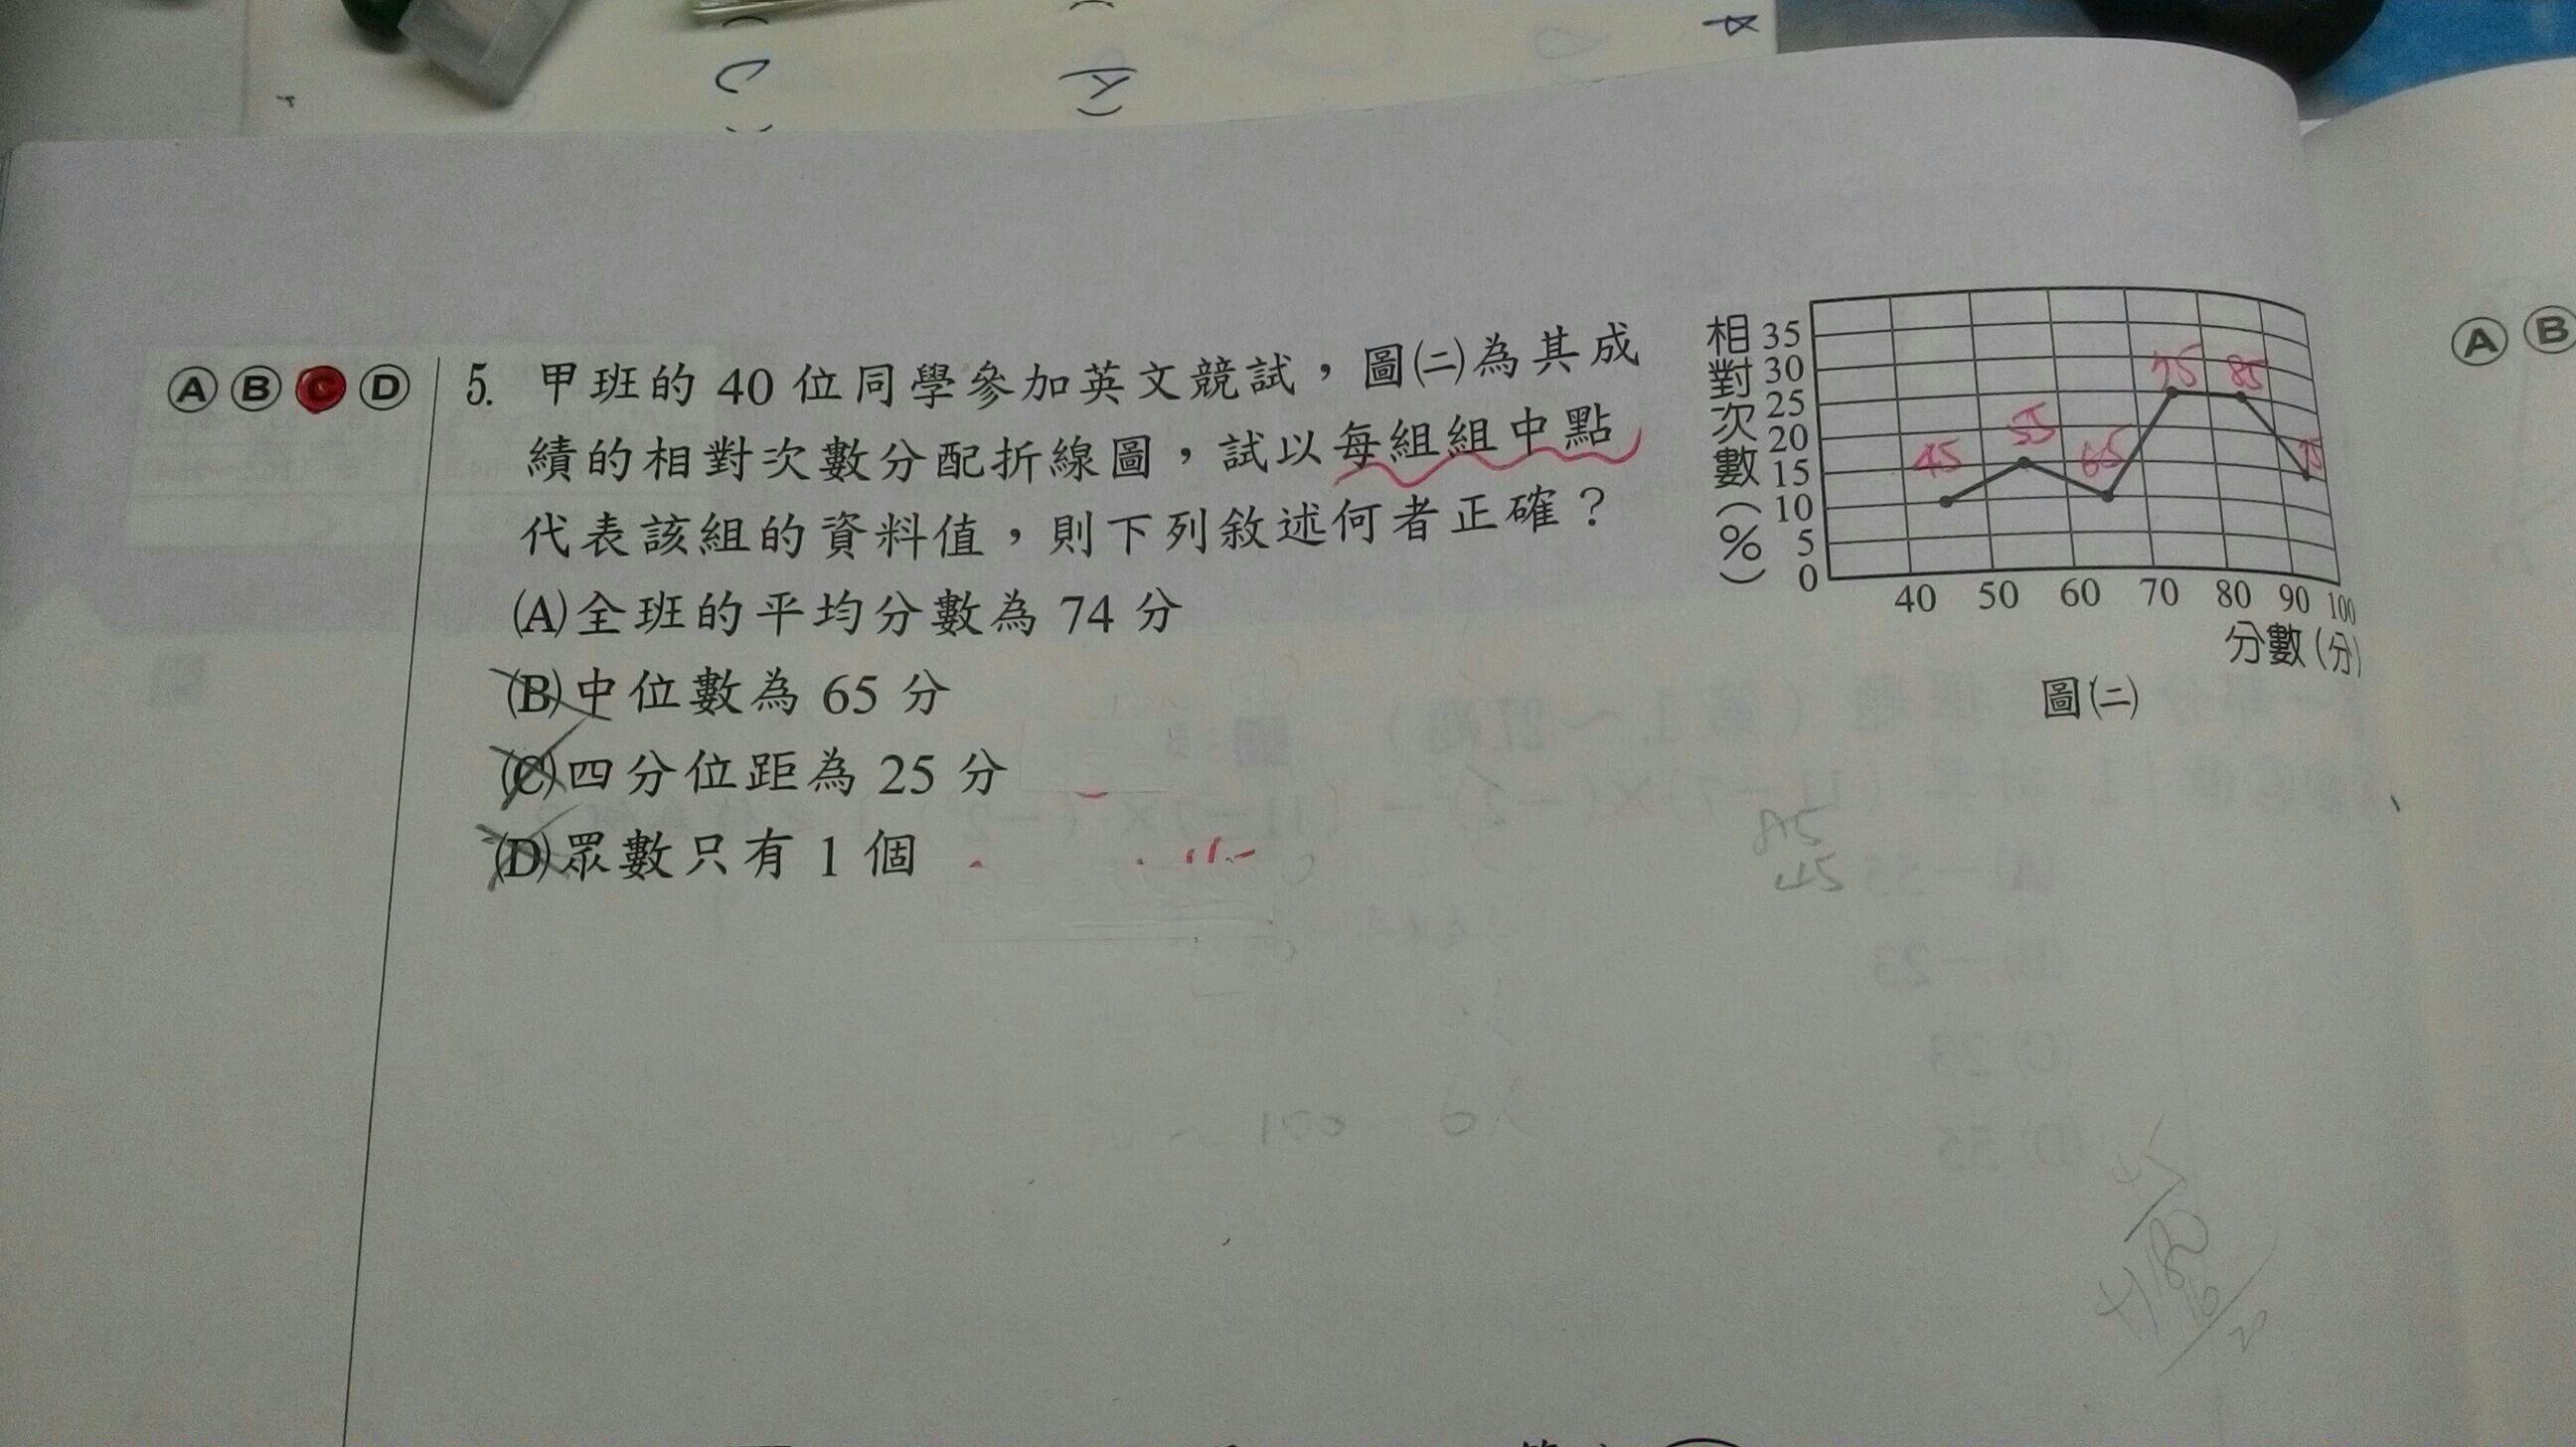 Ⓐ Ⓑ Ⓒ Ⓓ
5. 甲班的 40 位同學參加英文競試，圖㈡為其成
績的相對次數分配折線圖，試以每組組中點
代表該組的資料值，則下列敘述何者正確？
(A)全班的平均分數為 74 分
(B)中位數為 65 分
(C)四分位距為 25 分
(D)眾數只有 1 個
相對次數(%)
35
30
25
20
15
10
5
0
40 50 60 70 80 90 100
分數(分)
圖㈡
45 55 65 75 85
85
45
Ⓐ Ⓑ